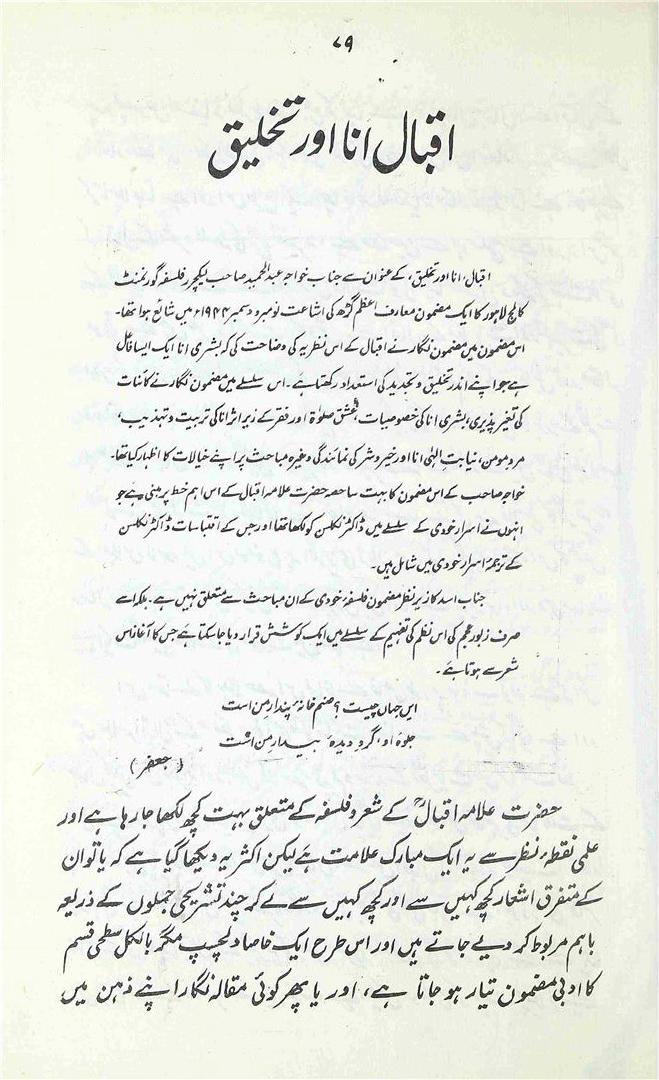 ۷۹
اقبال انا اور تخلیق
اقبال، انا اور تخلیق، کے عنوان سے جناب خواجہ عبدالحمید صاحب لیکچرر فلسفہ گورنمنٹ
کالج لاہور کا ایک مضمون معارف اعظم گڑھ کی اشاعت نومبر و دسمبر ۱۹۴۴ء میں شائع ہوا تھا۔
اس مضمون میں مضمون نگار نے اقبال کے اس نظریہ کی وضاحت کی کہ بشری انا ایک ایسا فاعل
ہے جو اپنے اندر تخلیق و تجدید کی استعداد رکھتا ہے۔ اس سلسلے میں مضمون نگار نے کائنات
کی تغیر پذیری، بشری انا کی خصوصیات، عشق صلوٰۃ اور فقر کے زیر اثر انا کی تربیت و تہذیب،
مرد مومن، نیابتِ الٰہی انا اور خیر و شر کی نمائندگی وغیرہ مباحث پر اپنے خیالات کا اظہار کیا تھا۔
خواجہ صاحب کے اس مضمون کا بہت سا حصہ حضرت علامہ اقبال کے اس اہم خط پر مبنی ہے جو
انہوں نے اسرار خودی کے سلسلے میں ڈاکٹر نکلسن کو لکھا تھا اور جس کے اقتباسات ڈاکٹر نکلسن
کے ترجمۂ اسرار خودی میں شامل ہیں۔
جناب اسد کا زیر نظر مضمون فلسفۂ خودی کے ان مباحث سے متعلق نہیں ہے۔ بلکہ اسے
صرف زبور عجم کی اس نظم کی تفہیم کے سلسلے میں ایک کوشش قرار دیا جا سکتا ہے جس کا آغاز اس
شعر سے ہوتا ہے۔
ایں جہاں چیست؟ صنم خانۂ پندار من است
جلوۂ او، گرو دیدۂ بیدار من است
(جعفر)
حضرت علامہ اقبالؒ کے شعر و فلسفہ کے متعلق بہت کچھ لکھا جا رہا ہے اور
علمی نقطۂ نظر سے یہ ایک مبارک علامت ہے لیکن اکثر یہ دیکھا گیا ہے کہ یا تو ان
کے متفرق اشعار کچھ کہیں سے اور کچھ کہیں سے لے کر چند تشریحی جملوں کے ذریعہ
باہم مربوط کر دیے جاتے ہیں اور اس طرح ایک خاصا دلچسپ مگر بالکل سطحی قسم
کا ادبی مضمون تیار ہو جاتا ہے، اور یا پھر کوئی مقالہ نگار اپنے ذہن میں